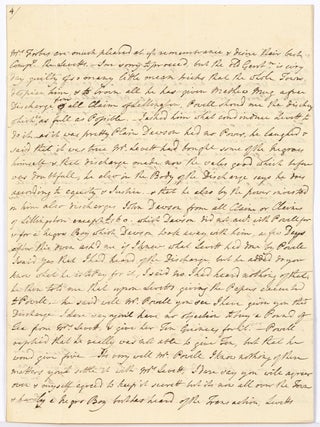 4/
Mrs Forbes are much pleased at yr remembrance & desire their best
Compts. Mrs Levett. – I'm sorry to proceed, but the Govr. is every
day guilty of so many little mean tricks that the whole Town
despise him & to Crown all he has given another Mug after
Discharge from all Claim of Lillington. Powell shew'd me the discharge
which is as full as Possible. I asked him what cou'd induce Levett to
do it as it was pretty Plain Dawson had no Power, he laughed &
said that it was true Mr Levett had bought some of the Negroes
himself & that discharge made now the sales good which before
was doubtfull, he also in the Body of the Discharge says he does
according to equity & Justice & that he also by the power invested
in him also discharges John Dawson from all Claim or Claims
of Lillingston except £60, which Dawson did not acct. with Powell for
for a Negro Boy which Dawson took away with him, a few Days
after this Man ask'd me if I knew what Levett had done by Powell
I said yes that I had heard of the Discharge, but he added do you
know what he is to Pay for it, I said no I had heard nothing of that
he then told me that upon Levetts giving the Papers executed
to Powell – he said well Mr. Powell you see I have given you this
Discharge I dare say you'll have no objection to buy a Pound of
Tea from Mrs Levett, & give her Ten Guineas for it – Powell
replied that he really was not able to give Ten, but that he
would give five – Its very well Mr. Powell I know nothing of these
matters you'll settle it with Mrs Levett, I dare say you'll agree
now & myself agreed to keep it secret but it's now all over the Town
& hardly a Negro Boy but has heard of the Transaction, Levetts